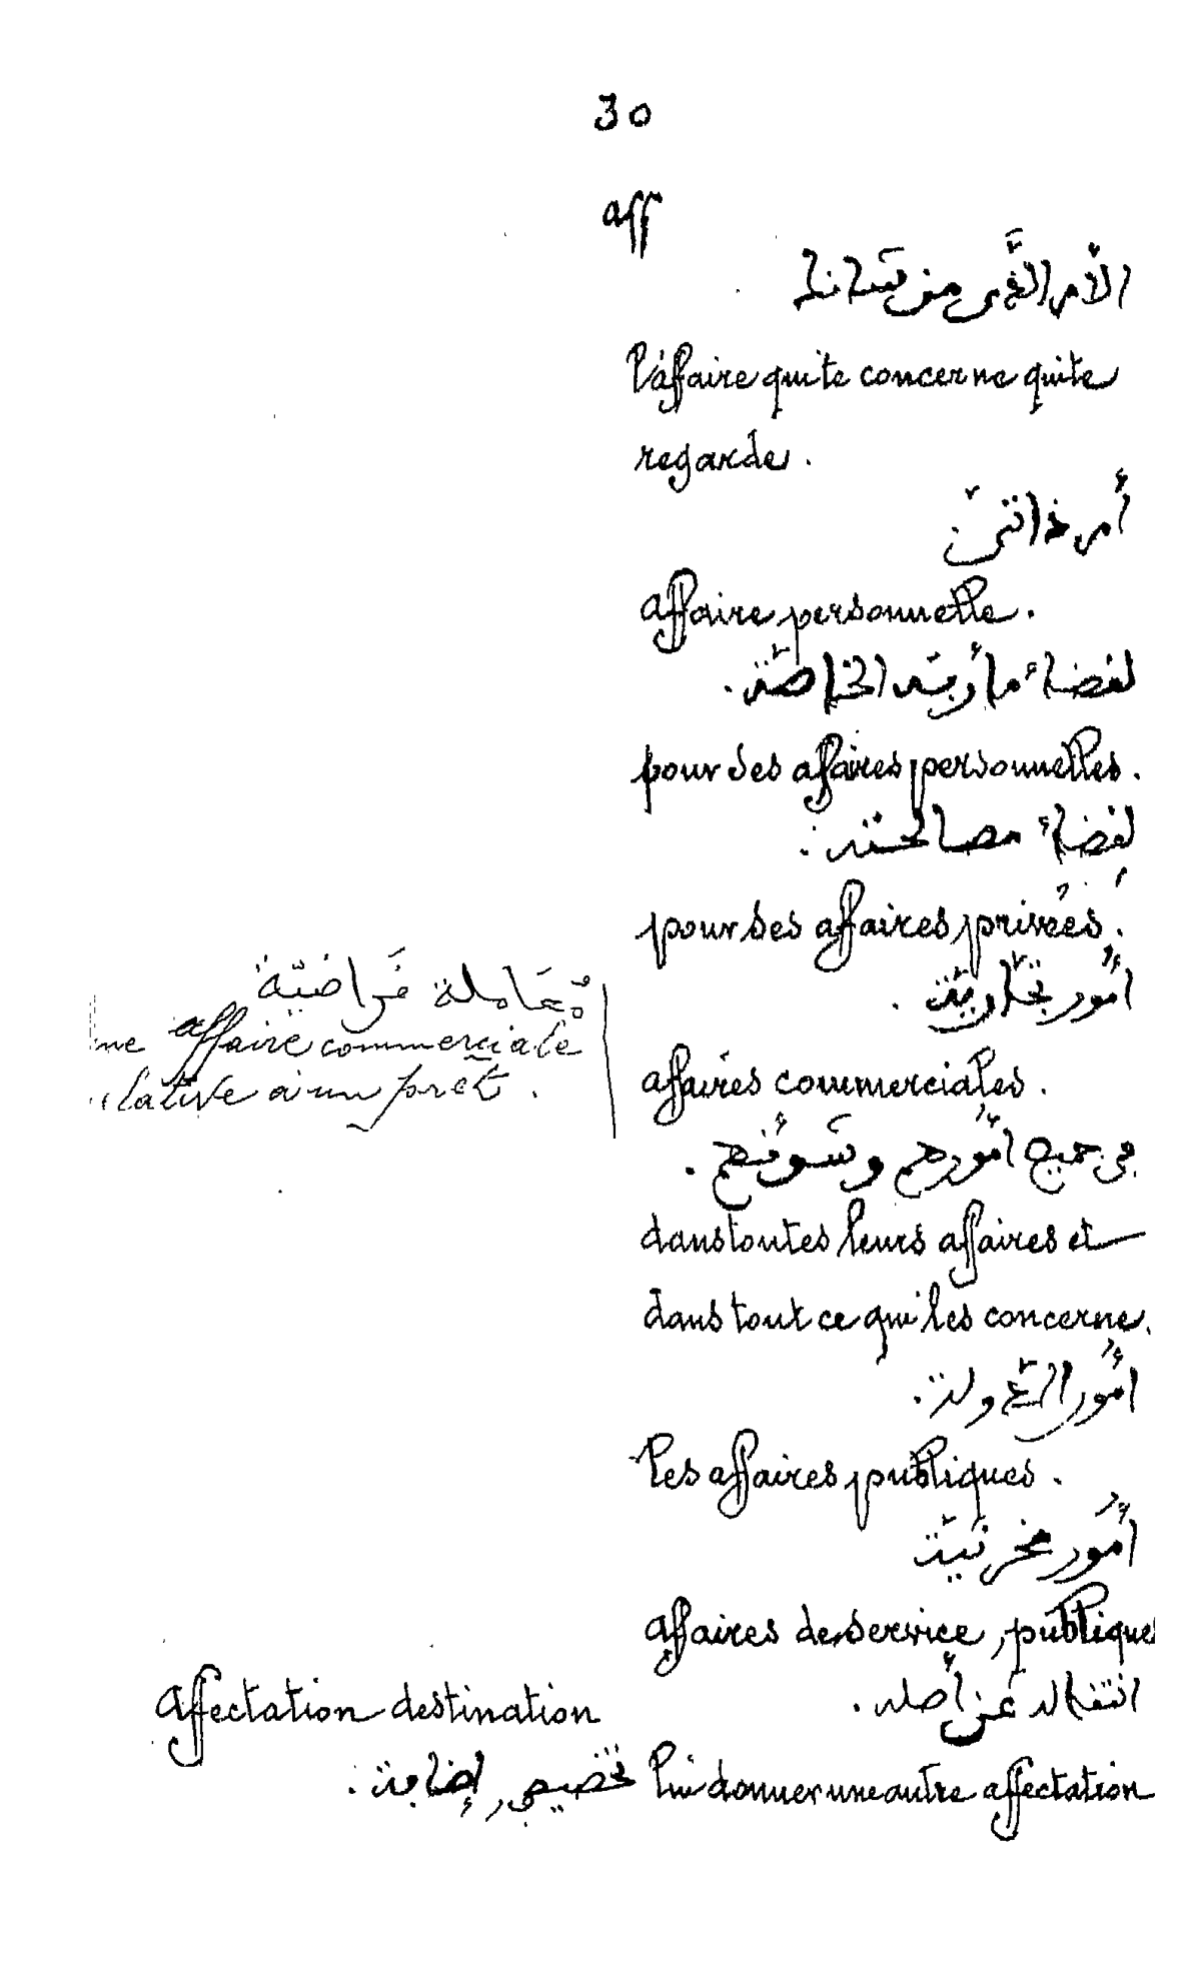 30
aff
الأمر الذي من شأنك
l'affaire qui te concerne qui te
regarde.
أمر ذاتي
affaire personnelle.
لقضاء مأربه الخاصة.
pour ses affaires personnelles.
لقضاء مصالحه.
pour ses affaires privées.
أمور تجارية.
affaires commerciales.
معاملة قراضية
une affaire commerciale
lative à un prêt.
في جميع أمورهم وشؤونهم.
dans toutes leurs affaires et
dans tout ce qui les concerne.
أمور الدولة.
les affaires publiques.
أمور مخزنية
affaires de service, publiques
انتقاله عن أصله.
lui donner une autre affectation
Affectation destination
تخصيص, إضافة.